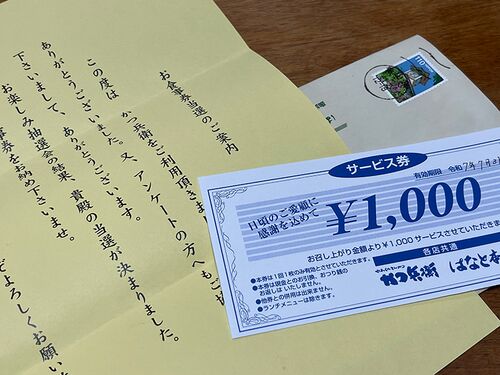 お食事券当選のご案内
この度は
かつ兵衛をご利用頂きま
ありがとうございました。又、アンケートの方へもご協
下さいまして、ありがとうございます。
お楽しみ抽選会の結果、貴殿の当選が決まりました。
事券を納め下さいませ。
でよろしくお願いた
110
サービス券
有効期限 令和7年7月
日頃のご愛顧に
感謝を込めて
¥1,000
お召し上がり金額より¥1,000サービスさせていただきます。
●本券は1回1枚のみ有効とさせていただきます。
●本券は現金とのお引換、おつり銭の
お返しは いたしません。
●他券との併用は出来ません。
●ランチメニューは除きます。
各店共通
かつ兵衛
はなと